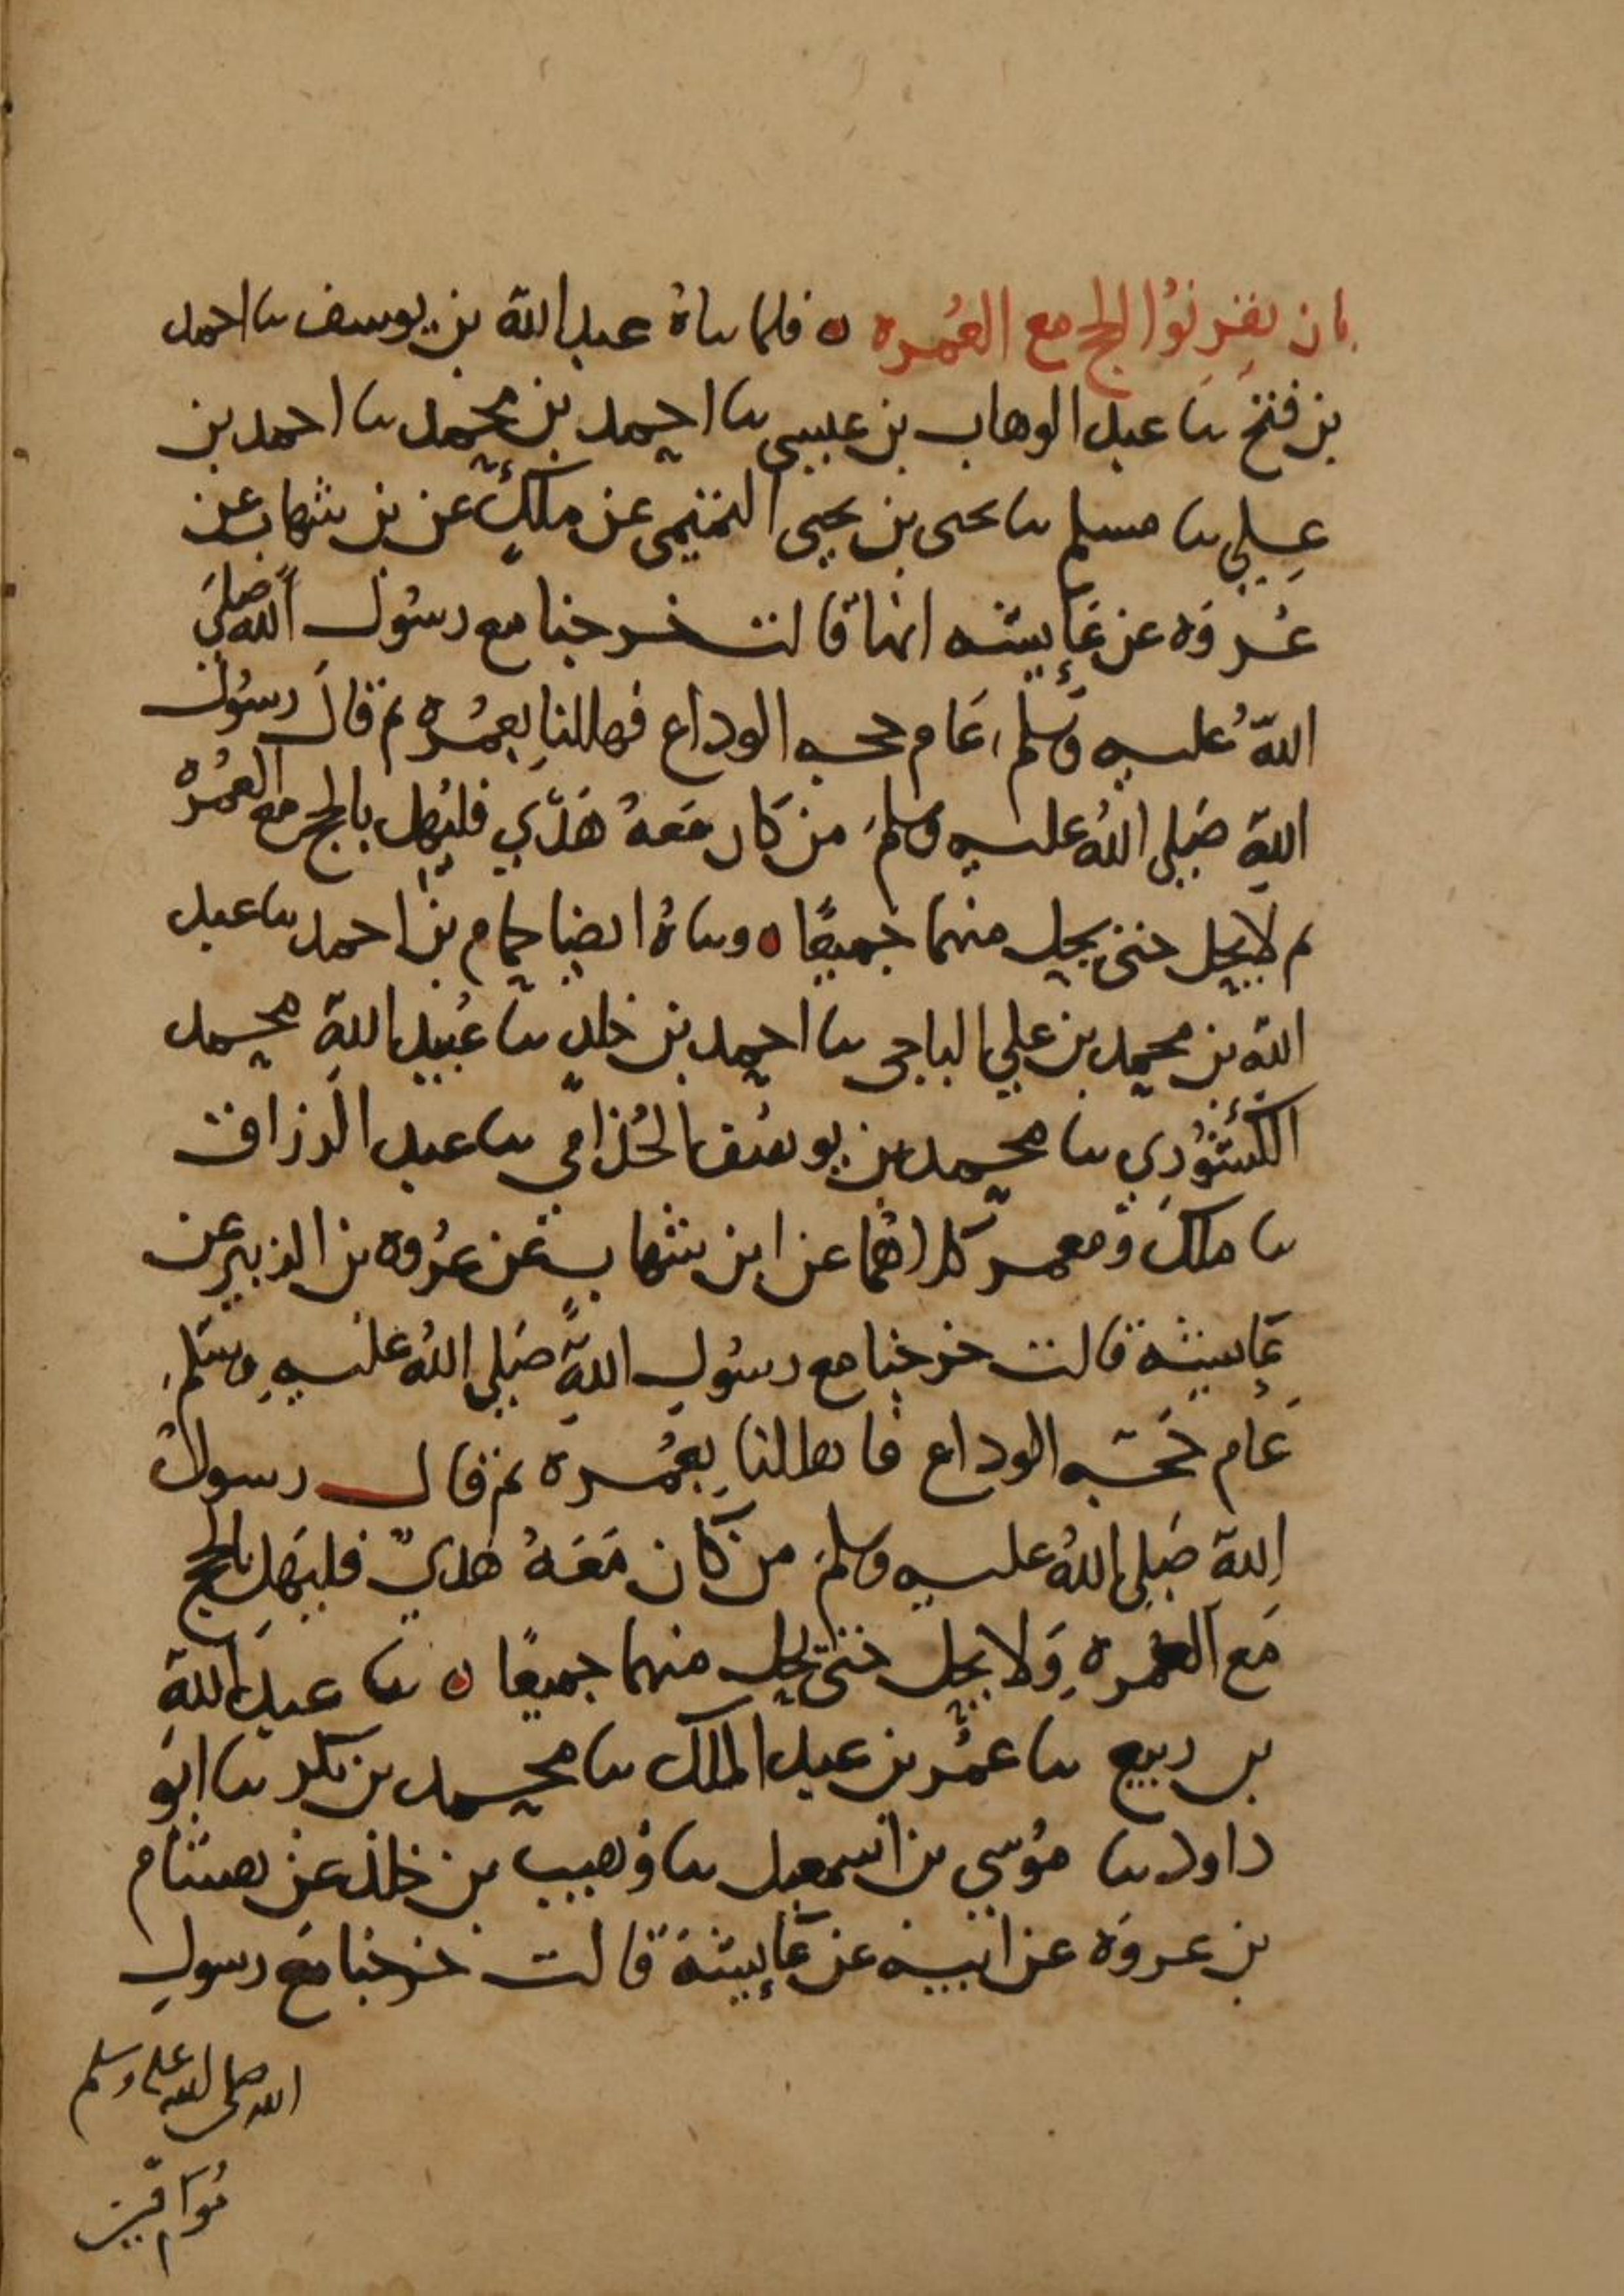 بان يقرنوا الحج مع العمره ه فلما ساه عبد الله بن يوسف سا احمد
بن فتح سا عبد الوهاب بن عيسى سا احمد بن محمد سا احمد بن
علي سا مسلم سا يحيى بن يحيى التميمي عن ملك عن بن شهاب عن
عروه عن عايشه انها قالت خرجنا مع رسول الله صلى
الله عليه وسلم عام حجه الوداع فهللنا بعمره ثم قال رسول
الله صلى الله عليه وسلم من كان معه هدي فليهل بالحج مع العمره
ثم لا يحل حتى يحل منهما جميعا ه وساه ايضا حمام بن احمد سا عبد
الله بن محمد بن علي الباجي سا احمد بن خلد سا عبيد الله محمد
الكشوري سا محمد بن يوسف الحذامي سا عبد الرزاق
سا ملك ومعمر كلاهما عن ابن شهاب عن عروه بن الزبير عن
عايشة قالت خرجنا مع رسول الله صلى الله عليه وسلم
عام حجه الوداع فاهللنا بعمره ثم قال رسول
الله صلى الله عليه وسلم من كان معه هدي فليهل بالحج
مع العمره ولا يحل حتى يحل منهما جميعا ه سا عبد الله
بن ربيع سا عمر بن عبد الملك سا محمد بن بكر سا ابو
داود سا موسى بن اسمعيل سا وهيب بن خلد عن هشام
بن عروه عن ابيه عن عايشة قالت خرجنا مع رسول
الله صلى الله عليه وسلم
موافين